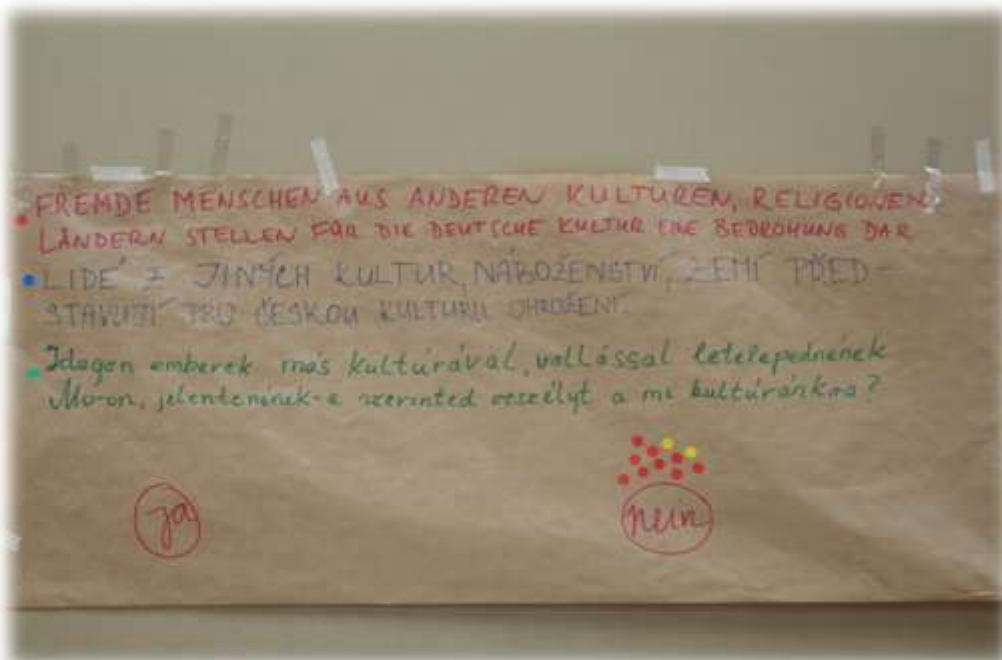 FREMDE MENSCHEN AUS ANDEREN KULTUREN, RELIGIONEN,
LÄNDERN STELLEN FÜR DIE DEUTSCHE KULTUR EINE BEDROHUNG DAR
LIDÉ Z JINÝCH KULTUR, NÁBOŽENSTVÍ, ZEMÍ PŘED-
STAVUJÍ PRO ČESKOU KULTURU OHROŽENÍ.
Idegen emberek más kultúrával, vallással letelepednének
Mo-on, jelentenének-e szerinted veszélyt a mi kultúránkra?
ja
nein